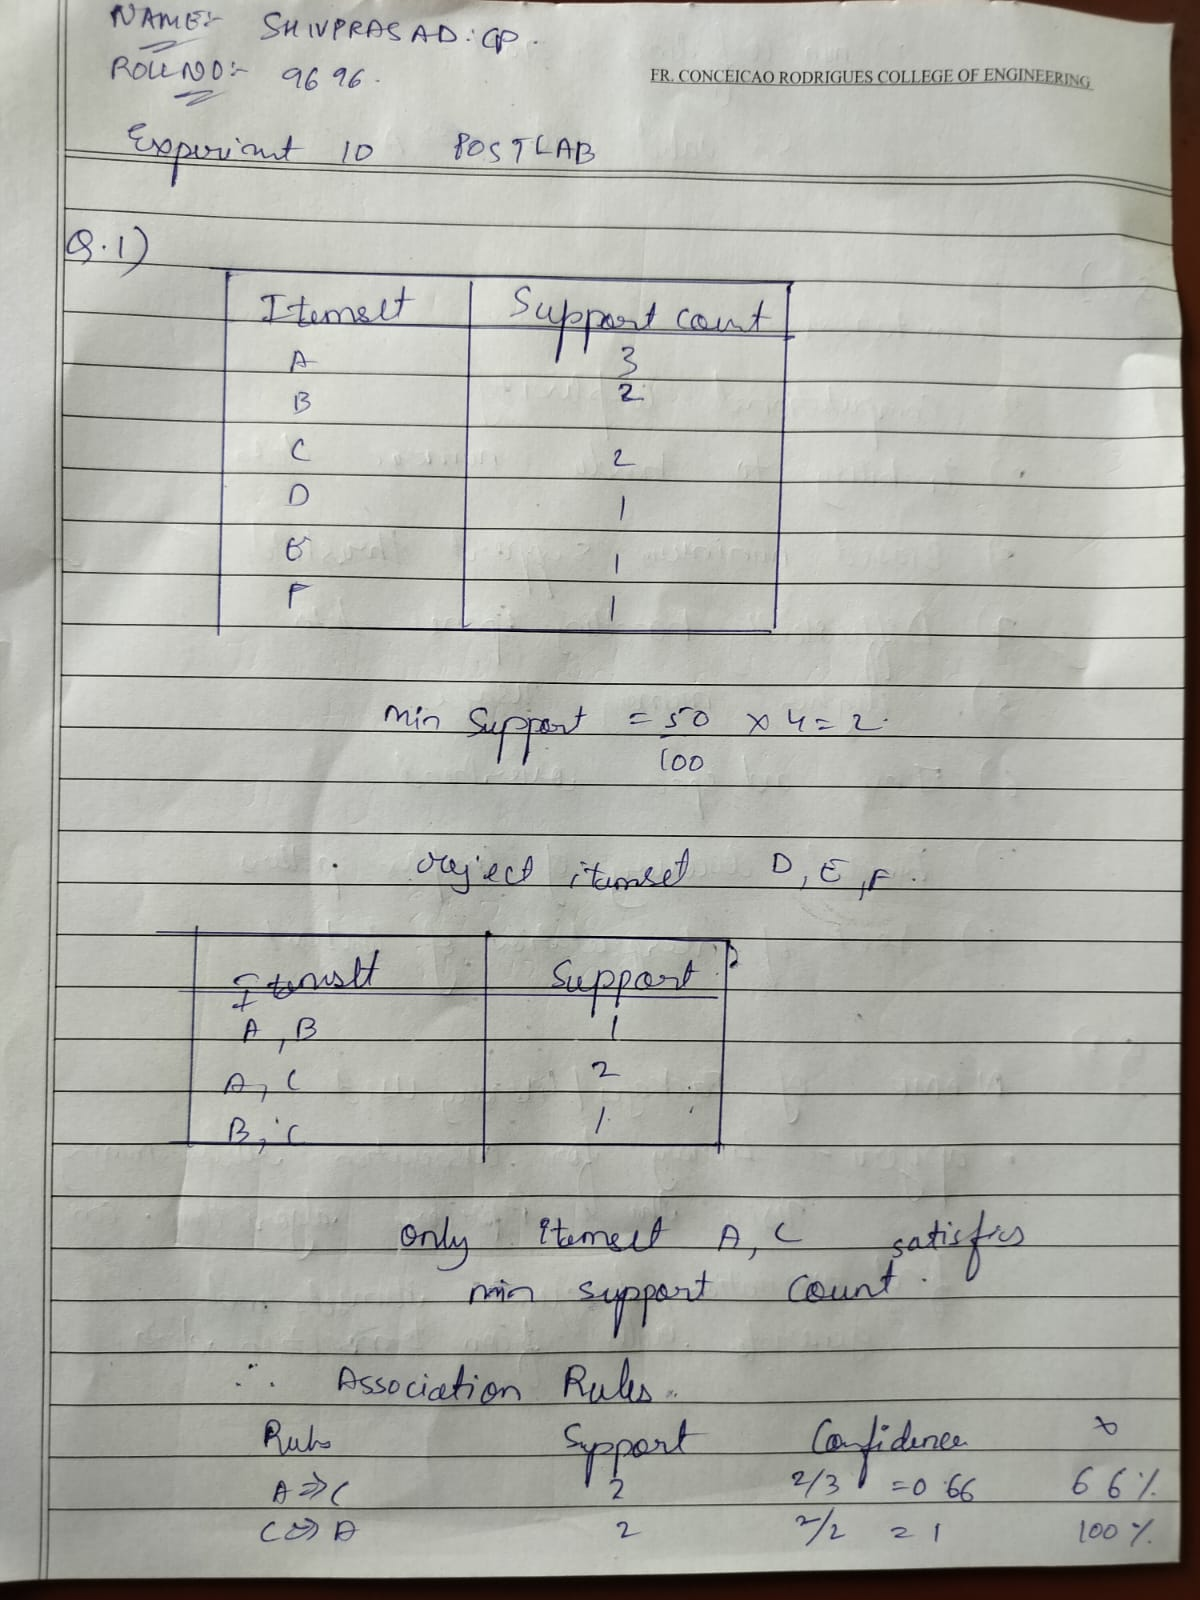 NAME:- SHIVPRASAD.CP.
ROLL NO:- 9696.
FR. CONCEICAO RODRIGUES COLLEGE OF ENGINEERING
Experiment 10 POSTLAB
Q.1)
Itemset Support count
A 3
B 2
C 2
D 1
E 1
F 1
Min Support = 50 x 4 = 2.
100
reject itemset D, E, F.
Itemset Support
A, B 1
A, C 2
B, C 1
Only Itemset A, C satisfies
min support count.
∴ Association Rules.
Rules Support Confidence %
A => C 2 2/3 = 0.66 66%
C => A 2 2/2 = 1 100%